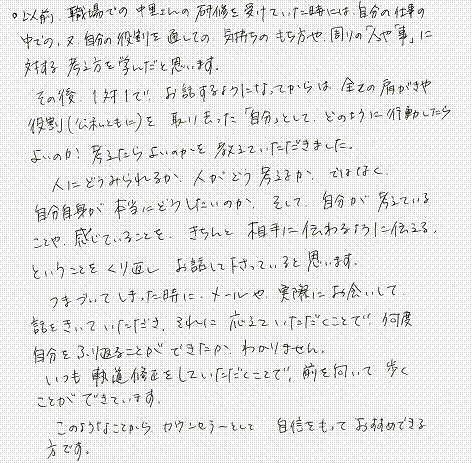 。以前、職場での中里さんの研修を受けていた時には、自分の仕事の
中での、又、自分の役割を通しての、気持ちのもち方や、周りの「人や事」に
対する考え方を学んだと思います。
その後、1対1で、お話するようになってからは、全ての肩がきや
役割(公私ともに)を取り去った「自分」として、どのように行動したら
よいのか?考えたらよいのかを教えていただきました。
人にどうみられるか、人がどう考えるか、ではなく、
自分自身が本当にどうしたいのか、そして、自分が考えている
ことや、感じていることを、きちんと相手に伝わるように伝える、
ということをくり返しお話して下さっていると思います。
つまづいてしまった時に、メールや、実際にお会いして
話をきいていただき、それに応えていただくことで、何度
自分をふり返ることができたか、わかりません。
いつも軌道修正をしていただくことで、前を向いて歩く
ことができています。
このようなことからカウンセラーとして自信をもっておすすめできる
方です。